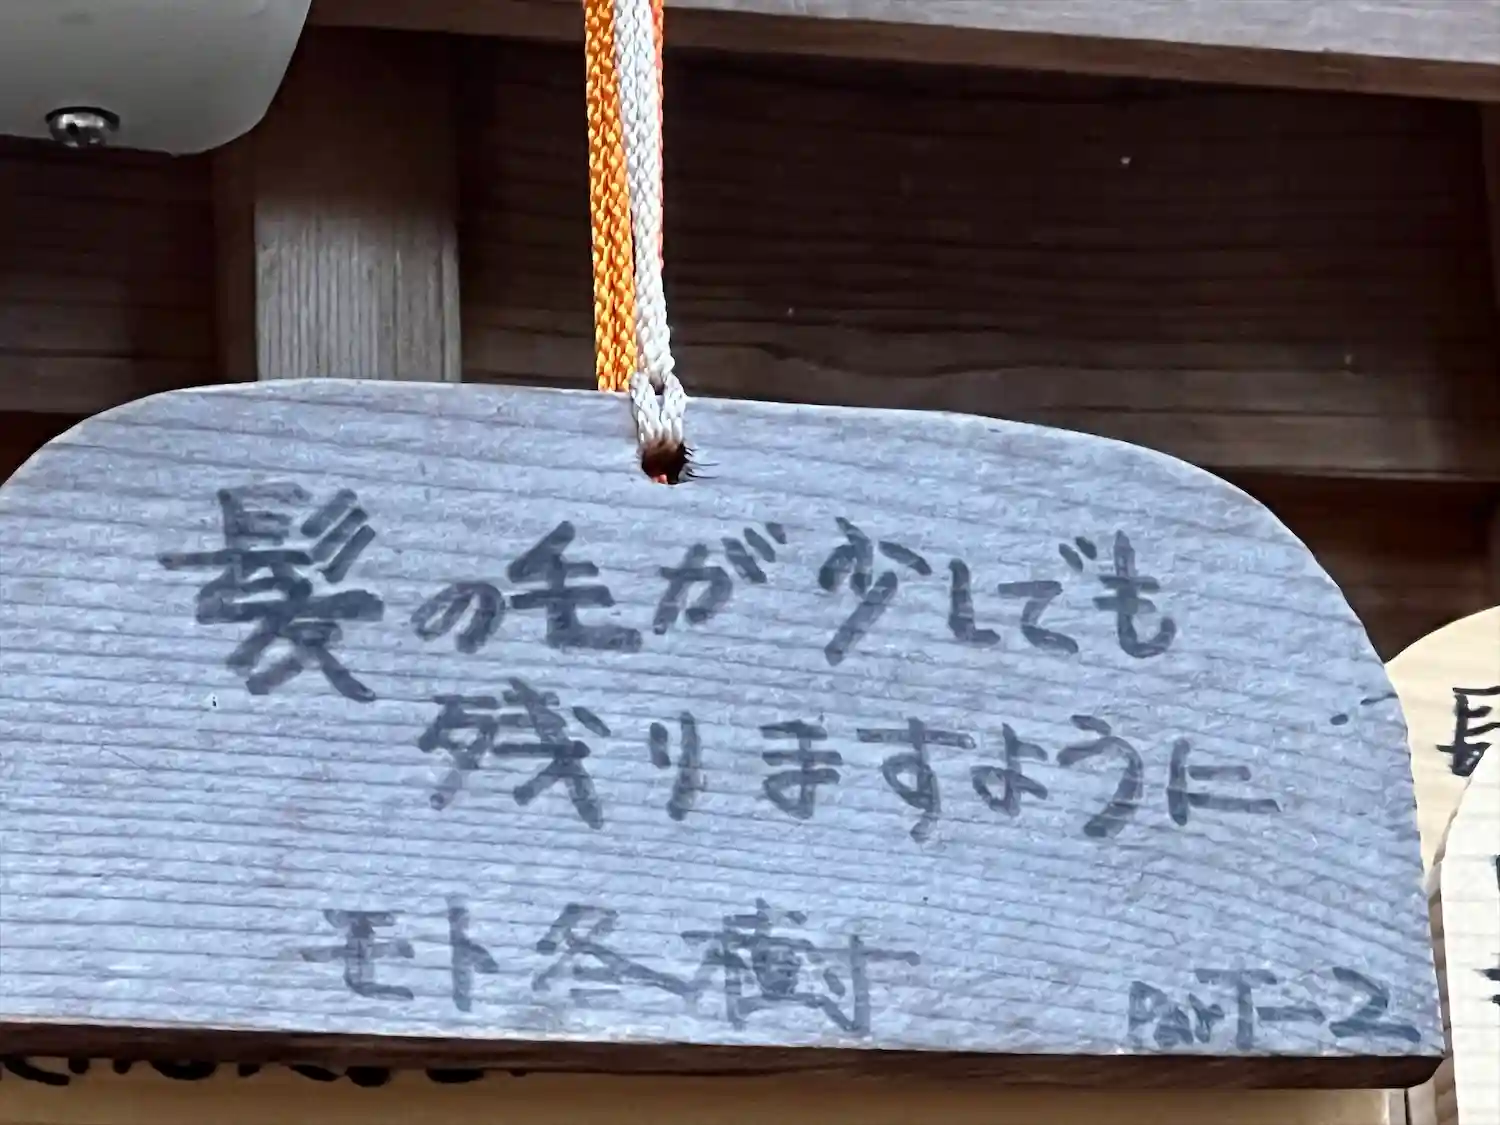 髪の毛が少しでも
残りますように
モト冬樹
PART-2
長